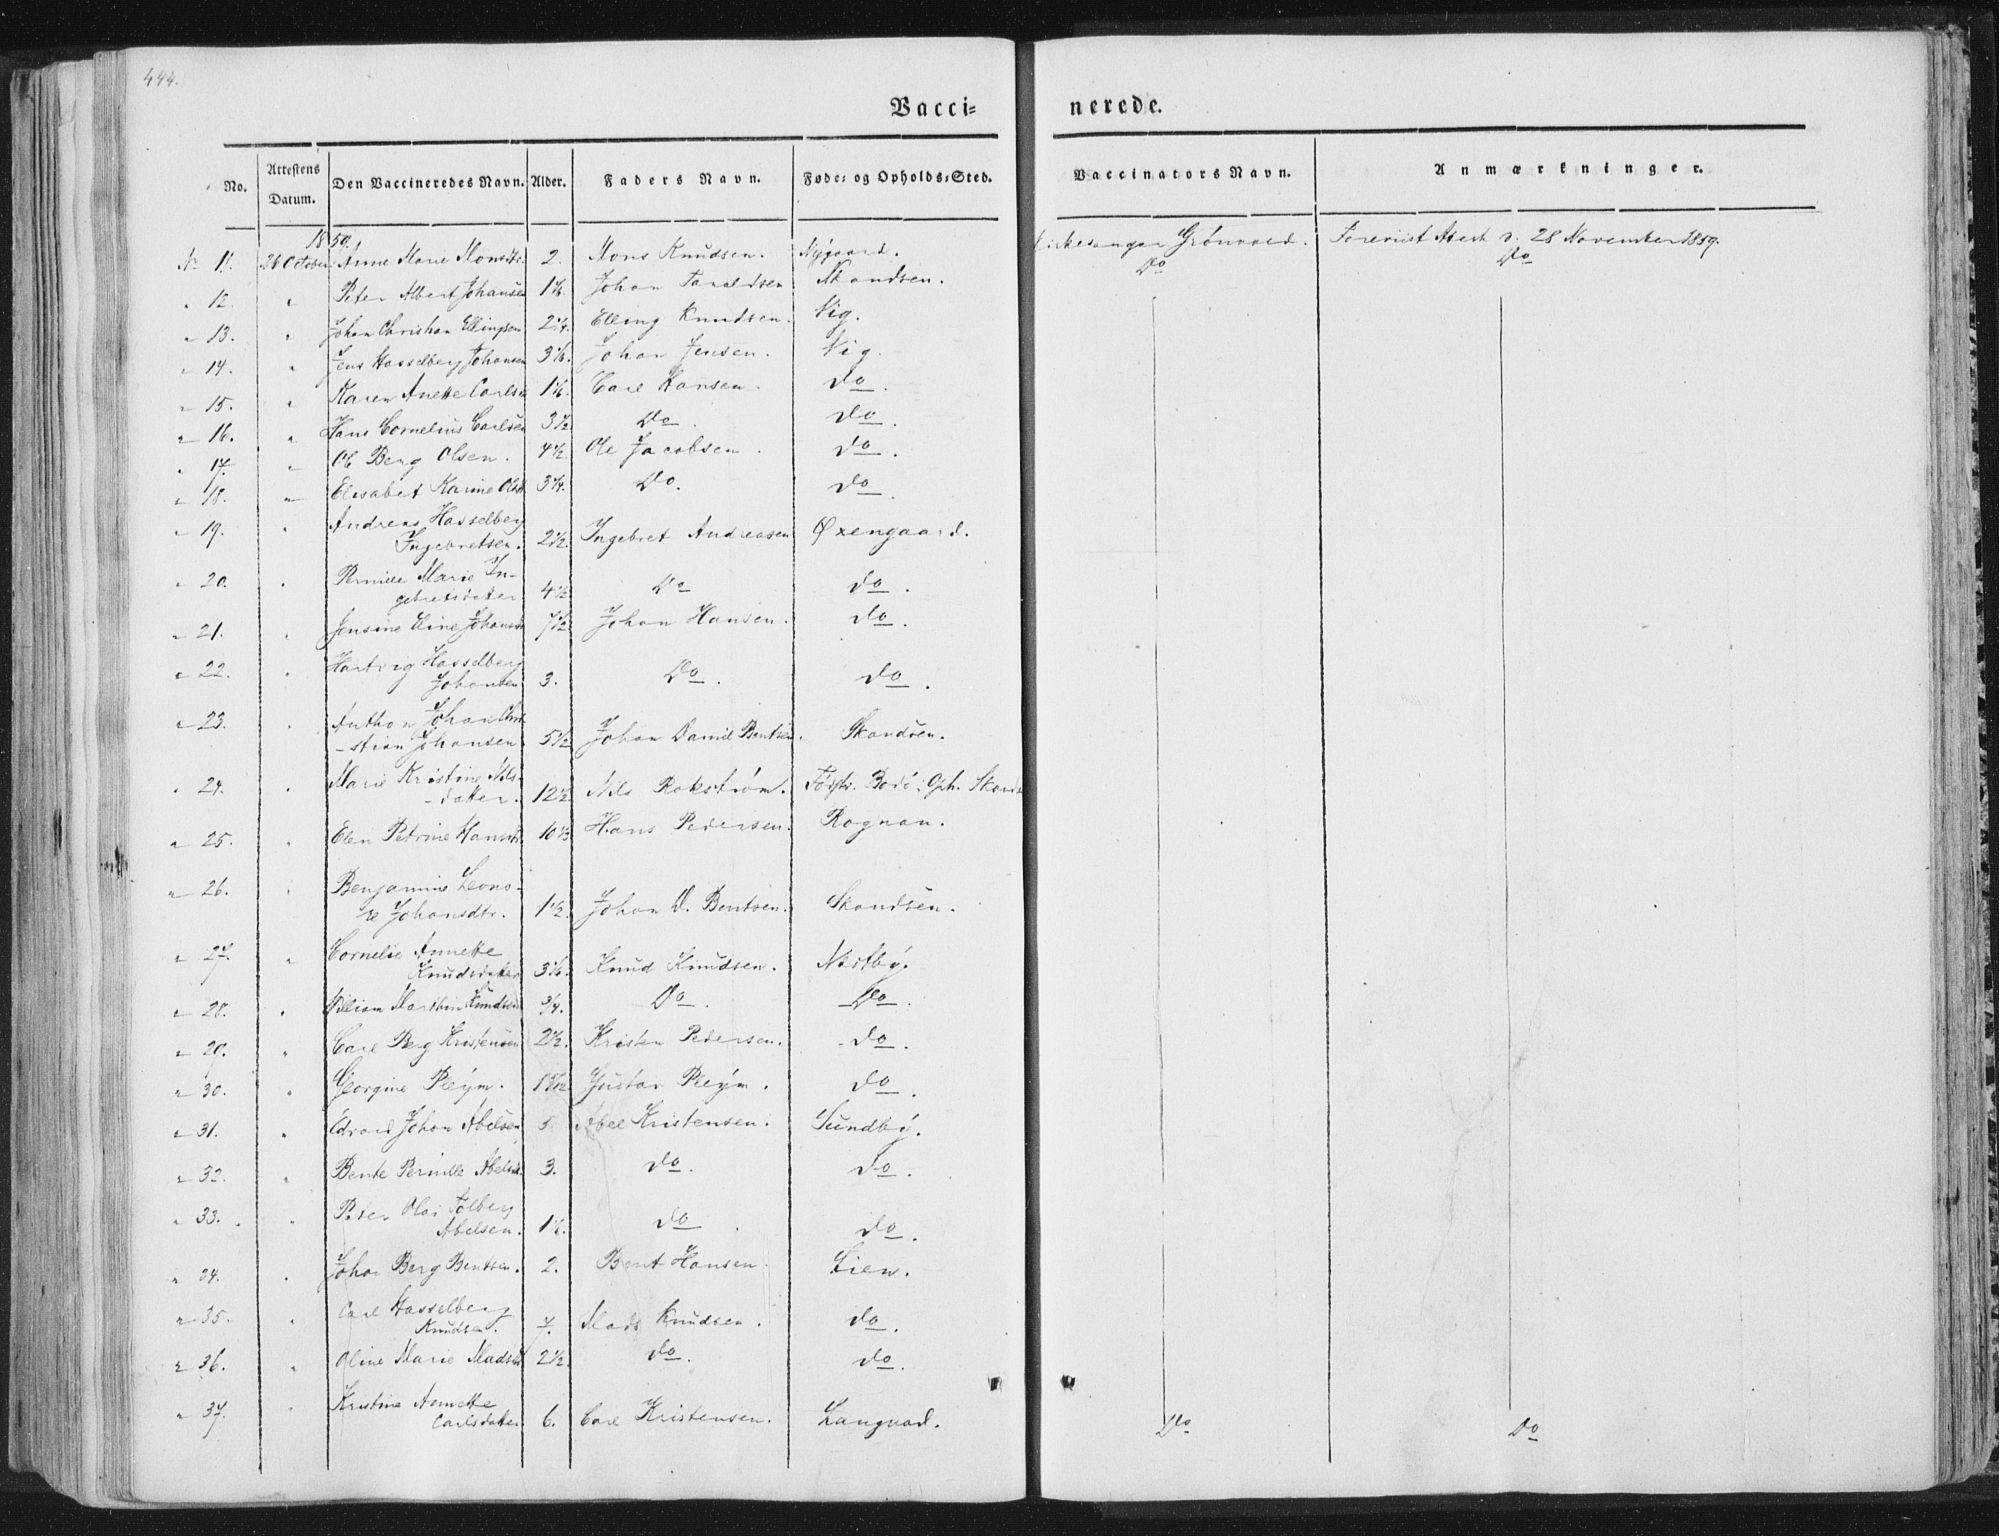 444.
Vacci= nerede.
No. Attestens Datum. Den Vaccineredes Navn. Alder. Faders Navn. Føde= og Opholds=Sted. Vaccinators Navn. Anmærkninger.
1859.
No 11. 26 October Anne Marie Monsdtr. 2. Mons Knudsen. Nygaard. Kirkesanger Grønvold. Foreviist Attest d. 28 November 1859.
" 12. " Peter Albert Johansen 1 1/6. Johan Taraldsen Skandsen. Do Do
" 13. " Johan Christian Ellingsen 2 1/4. Elling Knudsen. Vig.
" 14. " Jens Hasselberg Johansen 3 1/6. Johan Jensen. Vig.
" 15. " Karen Anette Carlsd 1 1/6. Carl Hansen. do.
" 16. " Hans Cornelius Carlsen 3 1/2. Do. do.
" 17. " Ole Berg Olsen. 4 1/2. Ole Jacobsen. do.
" 18. " Elisabet Karine Olsd 3 1/4. Do. do.
" 19. " Andreas Hasselberg
Ingebretsen. 2 1/2. Ingebret Andreasen Øxengaard.
" 20. " Pernille Marie In-
gebretsdatter 4 1/2 Do do.
" 21. " Jensine Eline Johansd 7 1/2 Johan Hansen. do.
" 22. " Hartvig Hasselberg
Johansen 3. Do. do.
" 23. " Anthon Johan Chri-
-stian Johansen. 5 1/2 Johan Daniel Bentsen. Skandsen.
" 24. " Marie Kristine Nils-
-datter. 12 1/2 Nils Rokstrøm. Bodø: Oph. Skands
" 25. " Elen Petrine Hansdtr. 10 1/3 Hans Pedersen. Rognan.
" 26. " Benjamine Leono-
re Johansdtr. 1 1/2. Johan D. Bentsen. Skandsen.
" 27. " Cornelie Annette
Knudsdatter 3 1/6. Knud Knudsen. Nestby.
" 28. " Villiam Marthin Knudsen 3/4. Do. Do.
" 29. " Carl Berg Kristensen 2 1/2. Kristen Pedersen. do.
" 30. " Georgine Pleym. Gustav Pleym. do.
" 31. " Edvard Johan Abelsen 5. Abel Kristensen. Sundby.
" 32. " Bente Pernille Abelsd. 3. do. do.
" 33. " Peter Olai Solberg
Abelsen. 1 1/6. do. do.
" 34. " Johan Berg Bentsen. 2. Bent Hansen. Lien.
" 35. " Carl Hasselberg
Knudsen. 7. Mads Knudsen. do.
" 36. " Oline Marie Madsdtr 2 1/2. do. do.
" 37. " Kristine Annette
Carlsdatter 6. Carl Kristensen. Langvad. Do Do